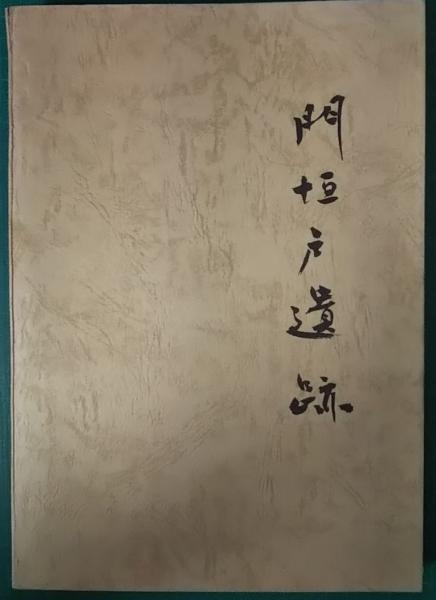 門垣戸遺跡